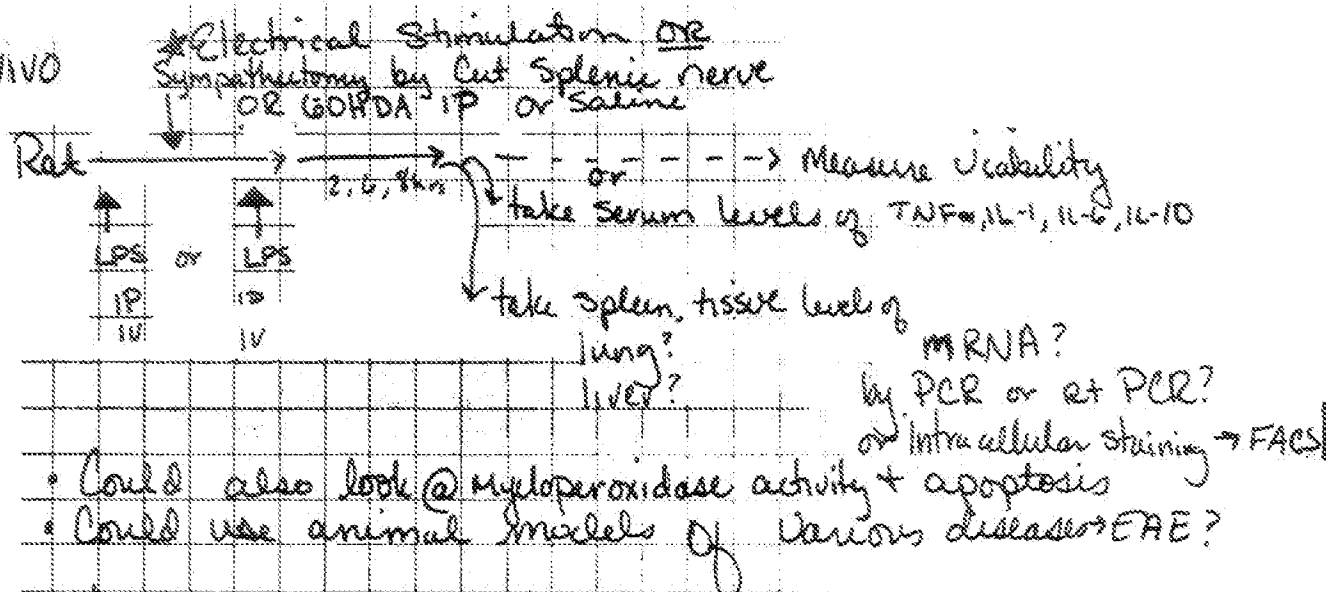 VIVO
*Electrical Stimulation OR
Sympathectomy by Cut Splenic nerve
OR 6OHDA IP or Saline
Rat
2, 6, 8hr
or
Measure Viability
take serum levels of TNFα, IL-1, IL-6, IL-10
LPS or LPS
IP IP
IV IV
take spleen, tissue levels of
lung?
liver?
mRNA?
by PCR or Rt PCR?
or Intracellular staining → FACS
• Could also look @ Myeloperoxidase activity + apoptosis
• Could use animal models of various diseases → EAE?